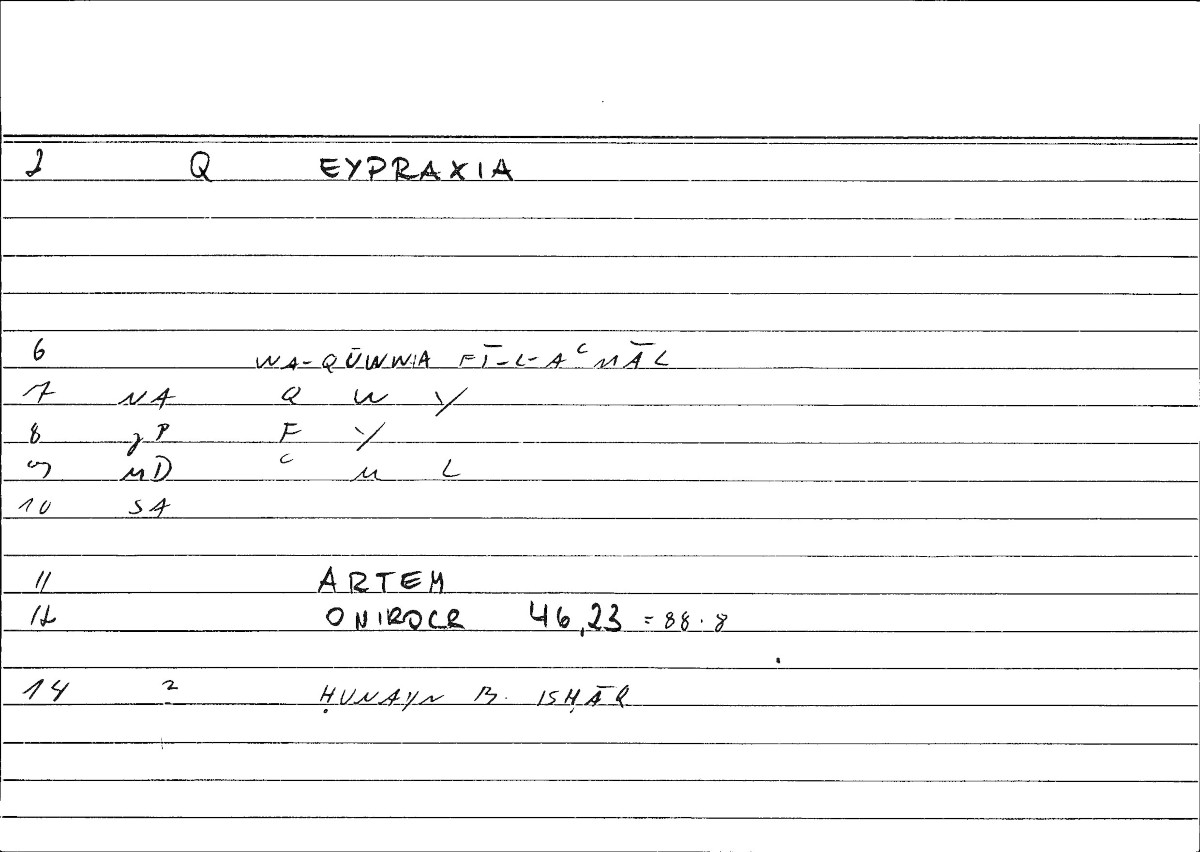 2 Q EYPRAXIA
6 WA-QŪWWIA FĪ-L-AᶜMĀL
7 NA Q W Y
8 gP F Y
9 MD ᶜ M L
10 SA
11 ARTEM
12 ONIROCR 46,23 = 88.8
14 2 ḤUNAYN B. ISḤĀQ